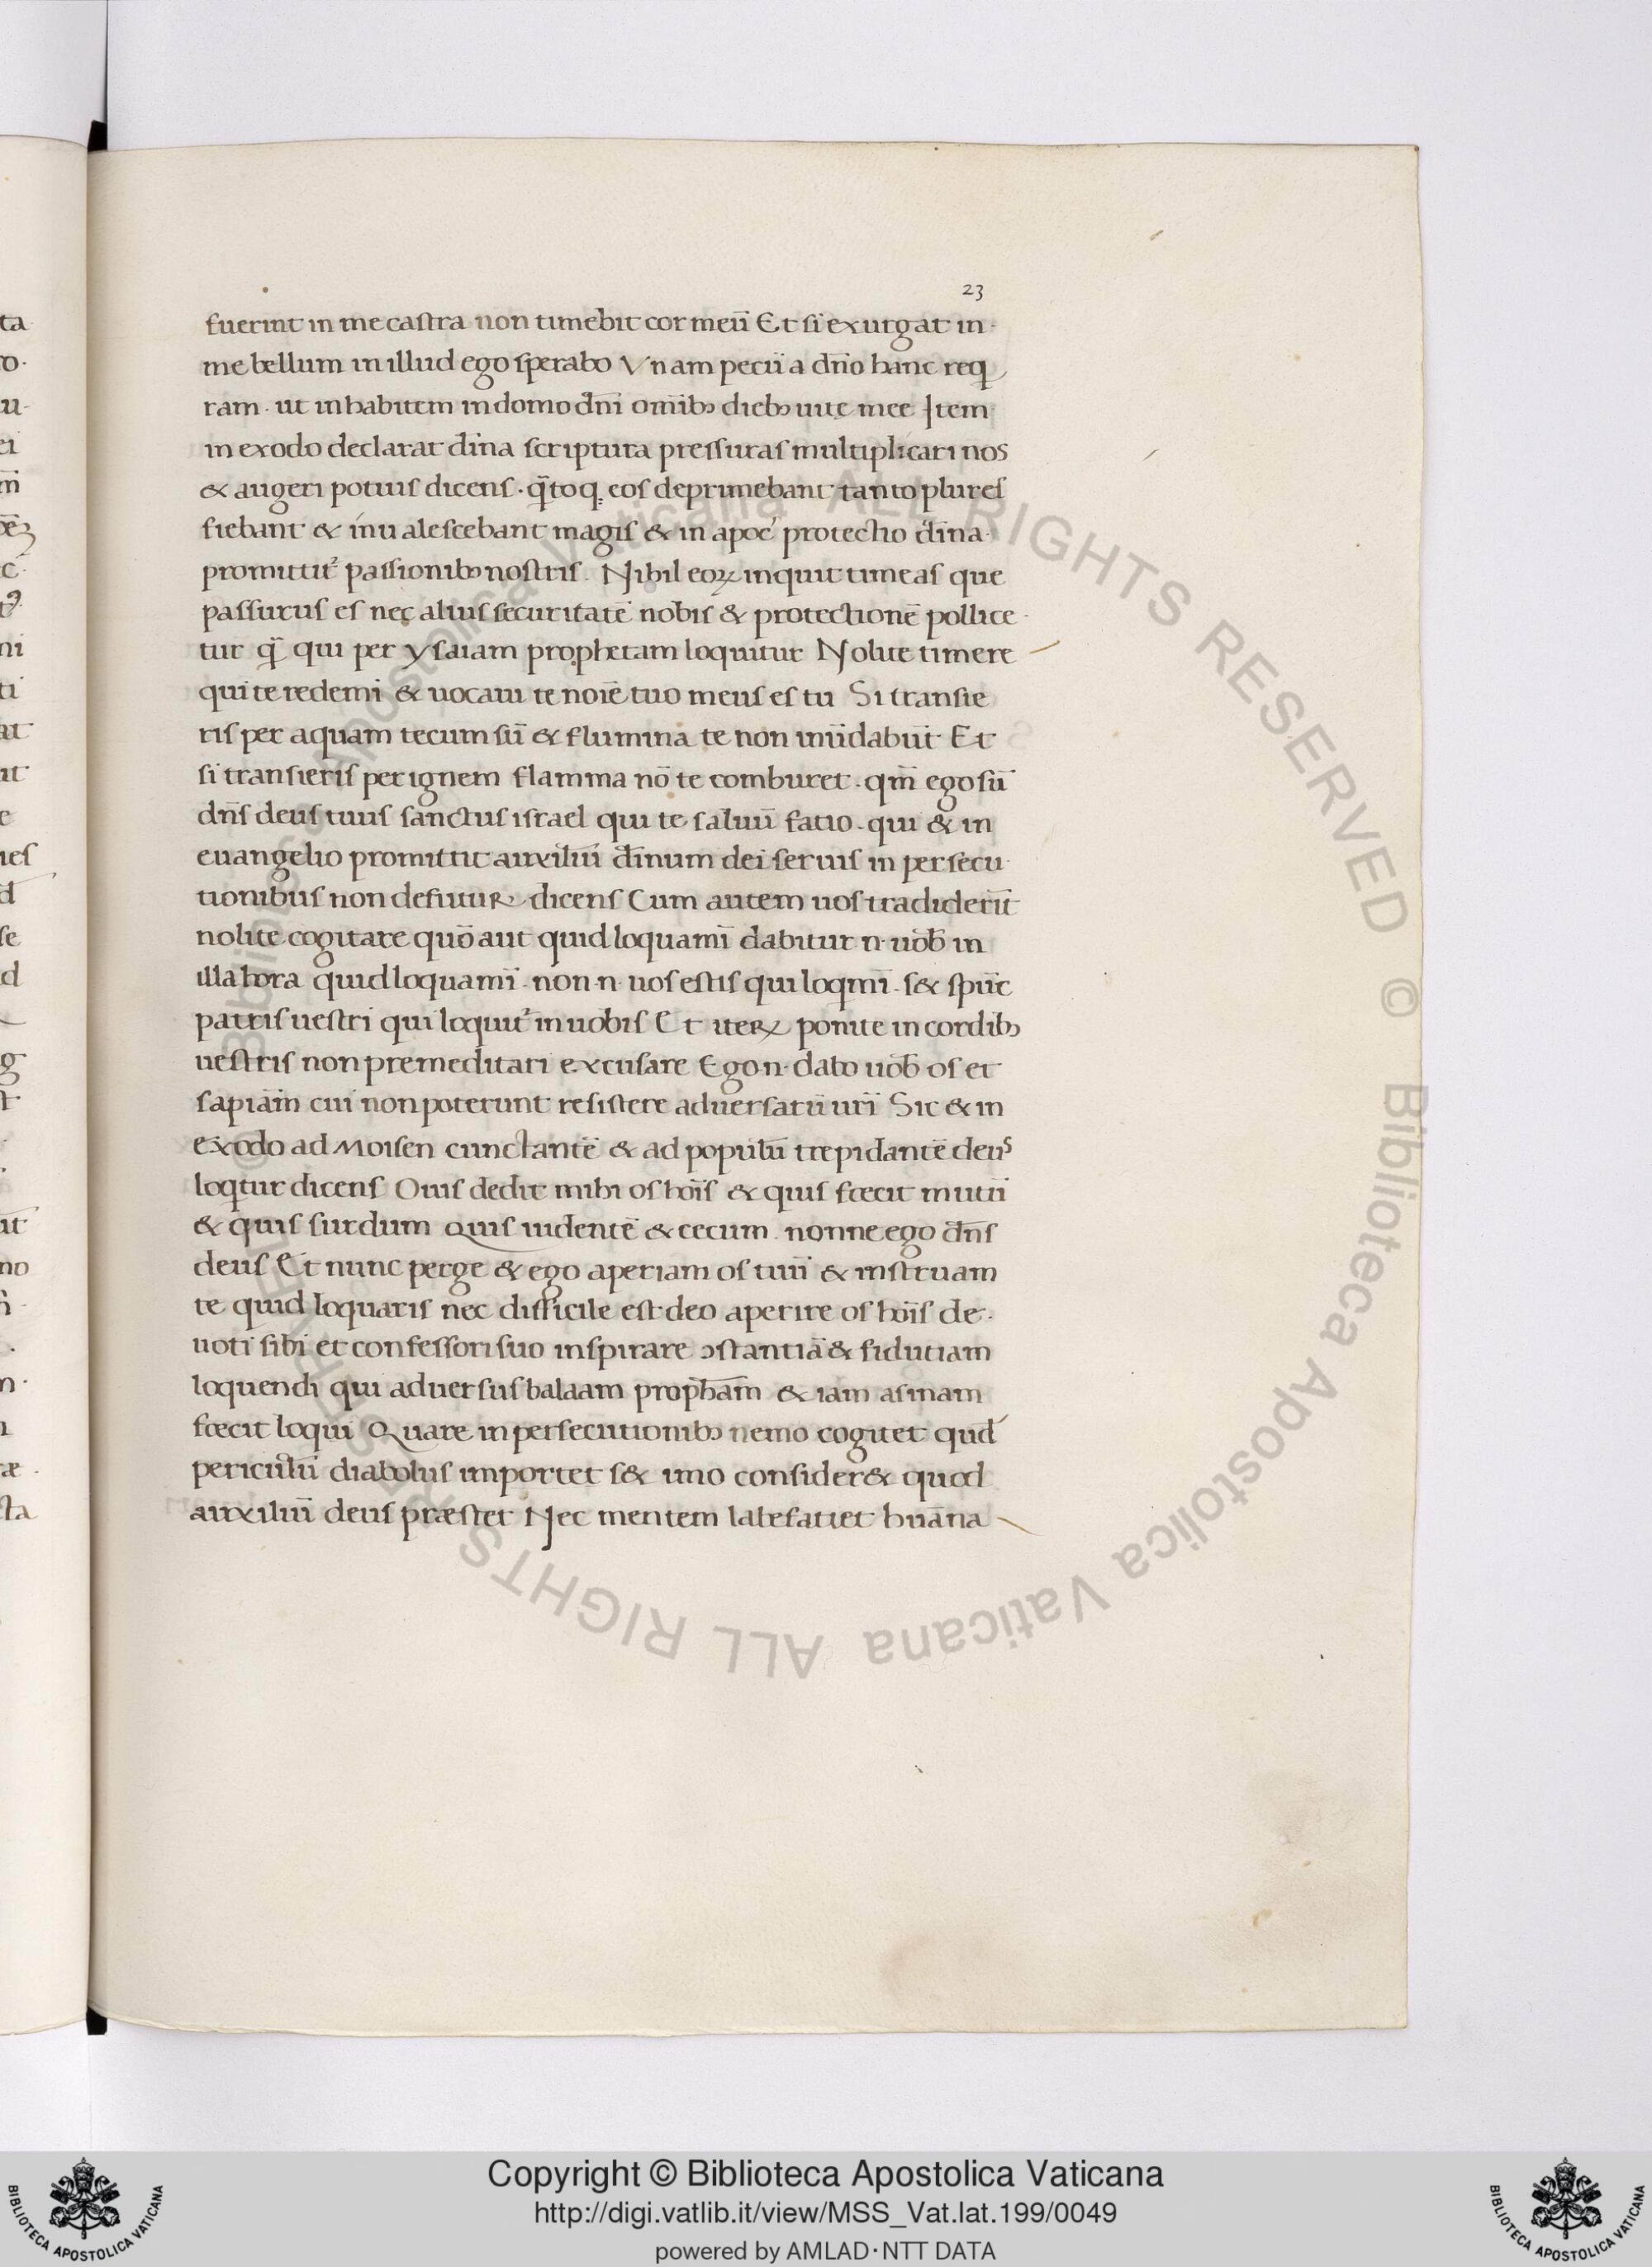 23
fuerint in me castra non timebit cor meũ Et si exurgat in
me bellum in illud ego sperabo Vnam pecii a dño hanc req
ram · ut inhabitem in domo dñi omĩbꝫ diebꝫ uitę mee Item
in exodo declarat diña scriptura pressuras multiplicari nos
& augeri potuis dicens · q̃to q eos deprimebant tanto plures
fiebant & inualescebant magis & in apoc̃ protectio diña
promittit᷑ passionibꝫ nostris . Nihil eoꝝ inquit timeas que
passurus es nec alius securitatẽ nobis & protectionẽ pollice
tur q̃ qui per ysaiam prophetam loquitur Nolite timere
qui te redemi & uocaui te noiẽ tuo meus es tu Si transie
ris per aquam tecum sũ & flumina te non inũdabũt Et
si transieris per ignem flamma nõ te comburet · qm̃ ego sũ
dñs deus tuus sanctus israel qui te saluũ fatio · qui & in
euangelio promittit auxiliũ diũinum dei seruis in persecu
tionibus non defutuꝝ dicens Cum autem uos tradiderĩt
nolite cogitare quõ aut quid loquamĩ dabitur n · uob̃ in
illa hora quid loquamĩ · non · n · uos estis qui loqmĩ · s& spũc
patris uestri qui loquit᷑ in uobis Et iteꝝ ponite in cordibꝫ
uestris non premeditari excusare Ego · n · dabo uob̃ os et
sapiãm cui non poterunt resistere aduersarii urĩ Sic & in
exodo ad Moisen cunctantẽ & ad populũ trepidantẽ deus
loqtur dicens Ouis dedit mihi os hoĩs & quis fœcit mutũ
& quis surdum Quis uidentẽ & cecum . nonne ego dñs
deus Et nunc perge & ego aperiam os tuũ & instruam
te quid loquaris nec difficile est deo aperire os hoĩs de
uoti sibi et confessori suo inspirare ↄstantiã & fidutiam
loquendi qui aduersus balaam prophãm & iam asinam
fœcit loqui Quare in persecutionibꝫ nemo cogitet quid
periculũ diabolus importet s& imo consider& quod
auxiliũ deus præstet Nec mentem labefatiet huãna
ALL RIGHTS RESERVED © Biblioteca Apostolica Vaticana
Copyright © Biblioteca Apostolica Vaticana
http://digi.vatlib.it/view/MSS_Vat.lat.199/0049
powered by AMLAD·NTT DATA
BIBLIOTECA APOSTOLICA VATICANA
BIBLIOTECA APOSTOLICA VATICANA